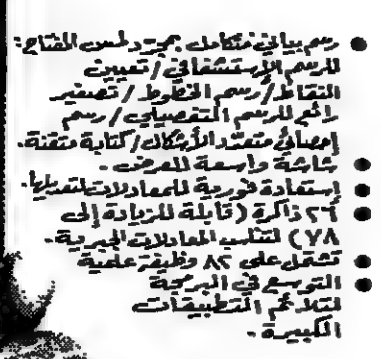 ● رسم بياني متكامل بمجرد لمس المفتاح:
للرسم الإستشفافي / تعيين
النقاط / رسم الخطوط / تصغير
رائع للرسم التفصيلي / رسم
إحصائي متعدد الأشكال / كتابة متقنة.
● شاشة واسعة للعرض.
● إستعادة فورية للمعادلات لتعديلها.
● ٢٦ ذاكرة (قابلة للزيادة إلى
٧٨) لتناسب المعادلات الجبرية.
● تشتمل على ٨٢ وظيفة علمية
● التوسع في البرمجة
لتلائم التطبيقات
الكبيرة.